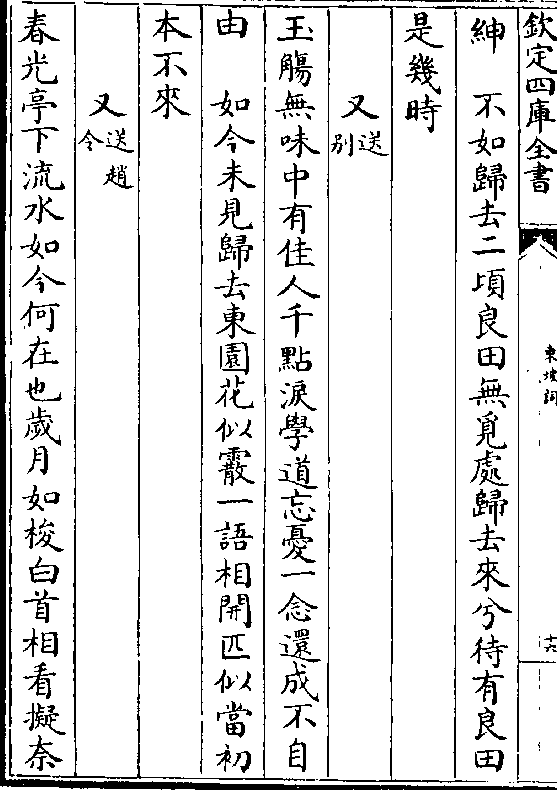 欽定四庫全書
東坡詞
十六
紳　不如歸去二頃良田無覓處歸去來兮待有良田
是幾時
又送別
玉觴無味中有佳人千點淚學道忘憂一念還成不自
由　如今未見歸去東園花似霰一語相開匹似當初
本不來
又送趙令
春光亭下流水如今何在也歲月如梭白首相看擬奈